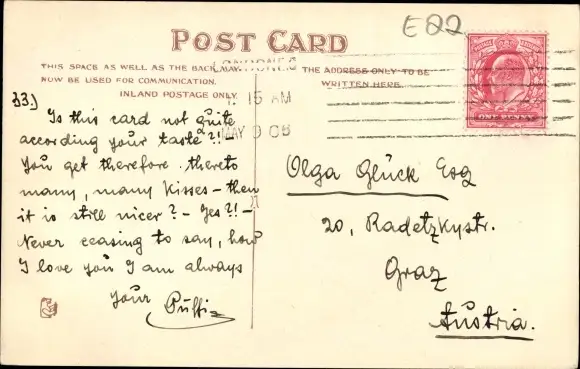 E22
POST CARD
THIS SPACE AS WELL AS THE BACK MAY
NOW BE USED FOR COMMUNICATION.
INLAND POSTAGE ONLY.
THE ADDRESS ONLY TO BE
WRITTEN HERE.
15 AM
MAY 9 06
33.)
Is this card not quite
according your taste?!! –
You get therefore thereto
many, many kisses – then
it is still nicer? – Yes?! –
Never ceasing to say, how
I love you I am always
your Puffi
Olga Glück Esq
20, Radetzkystr.
Graz
Austria.
ONE PENNY